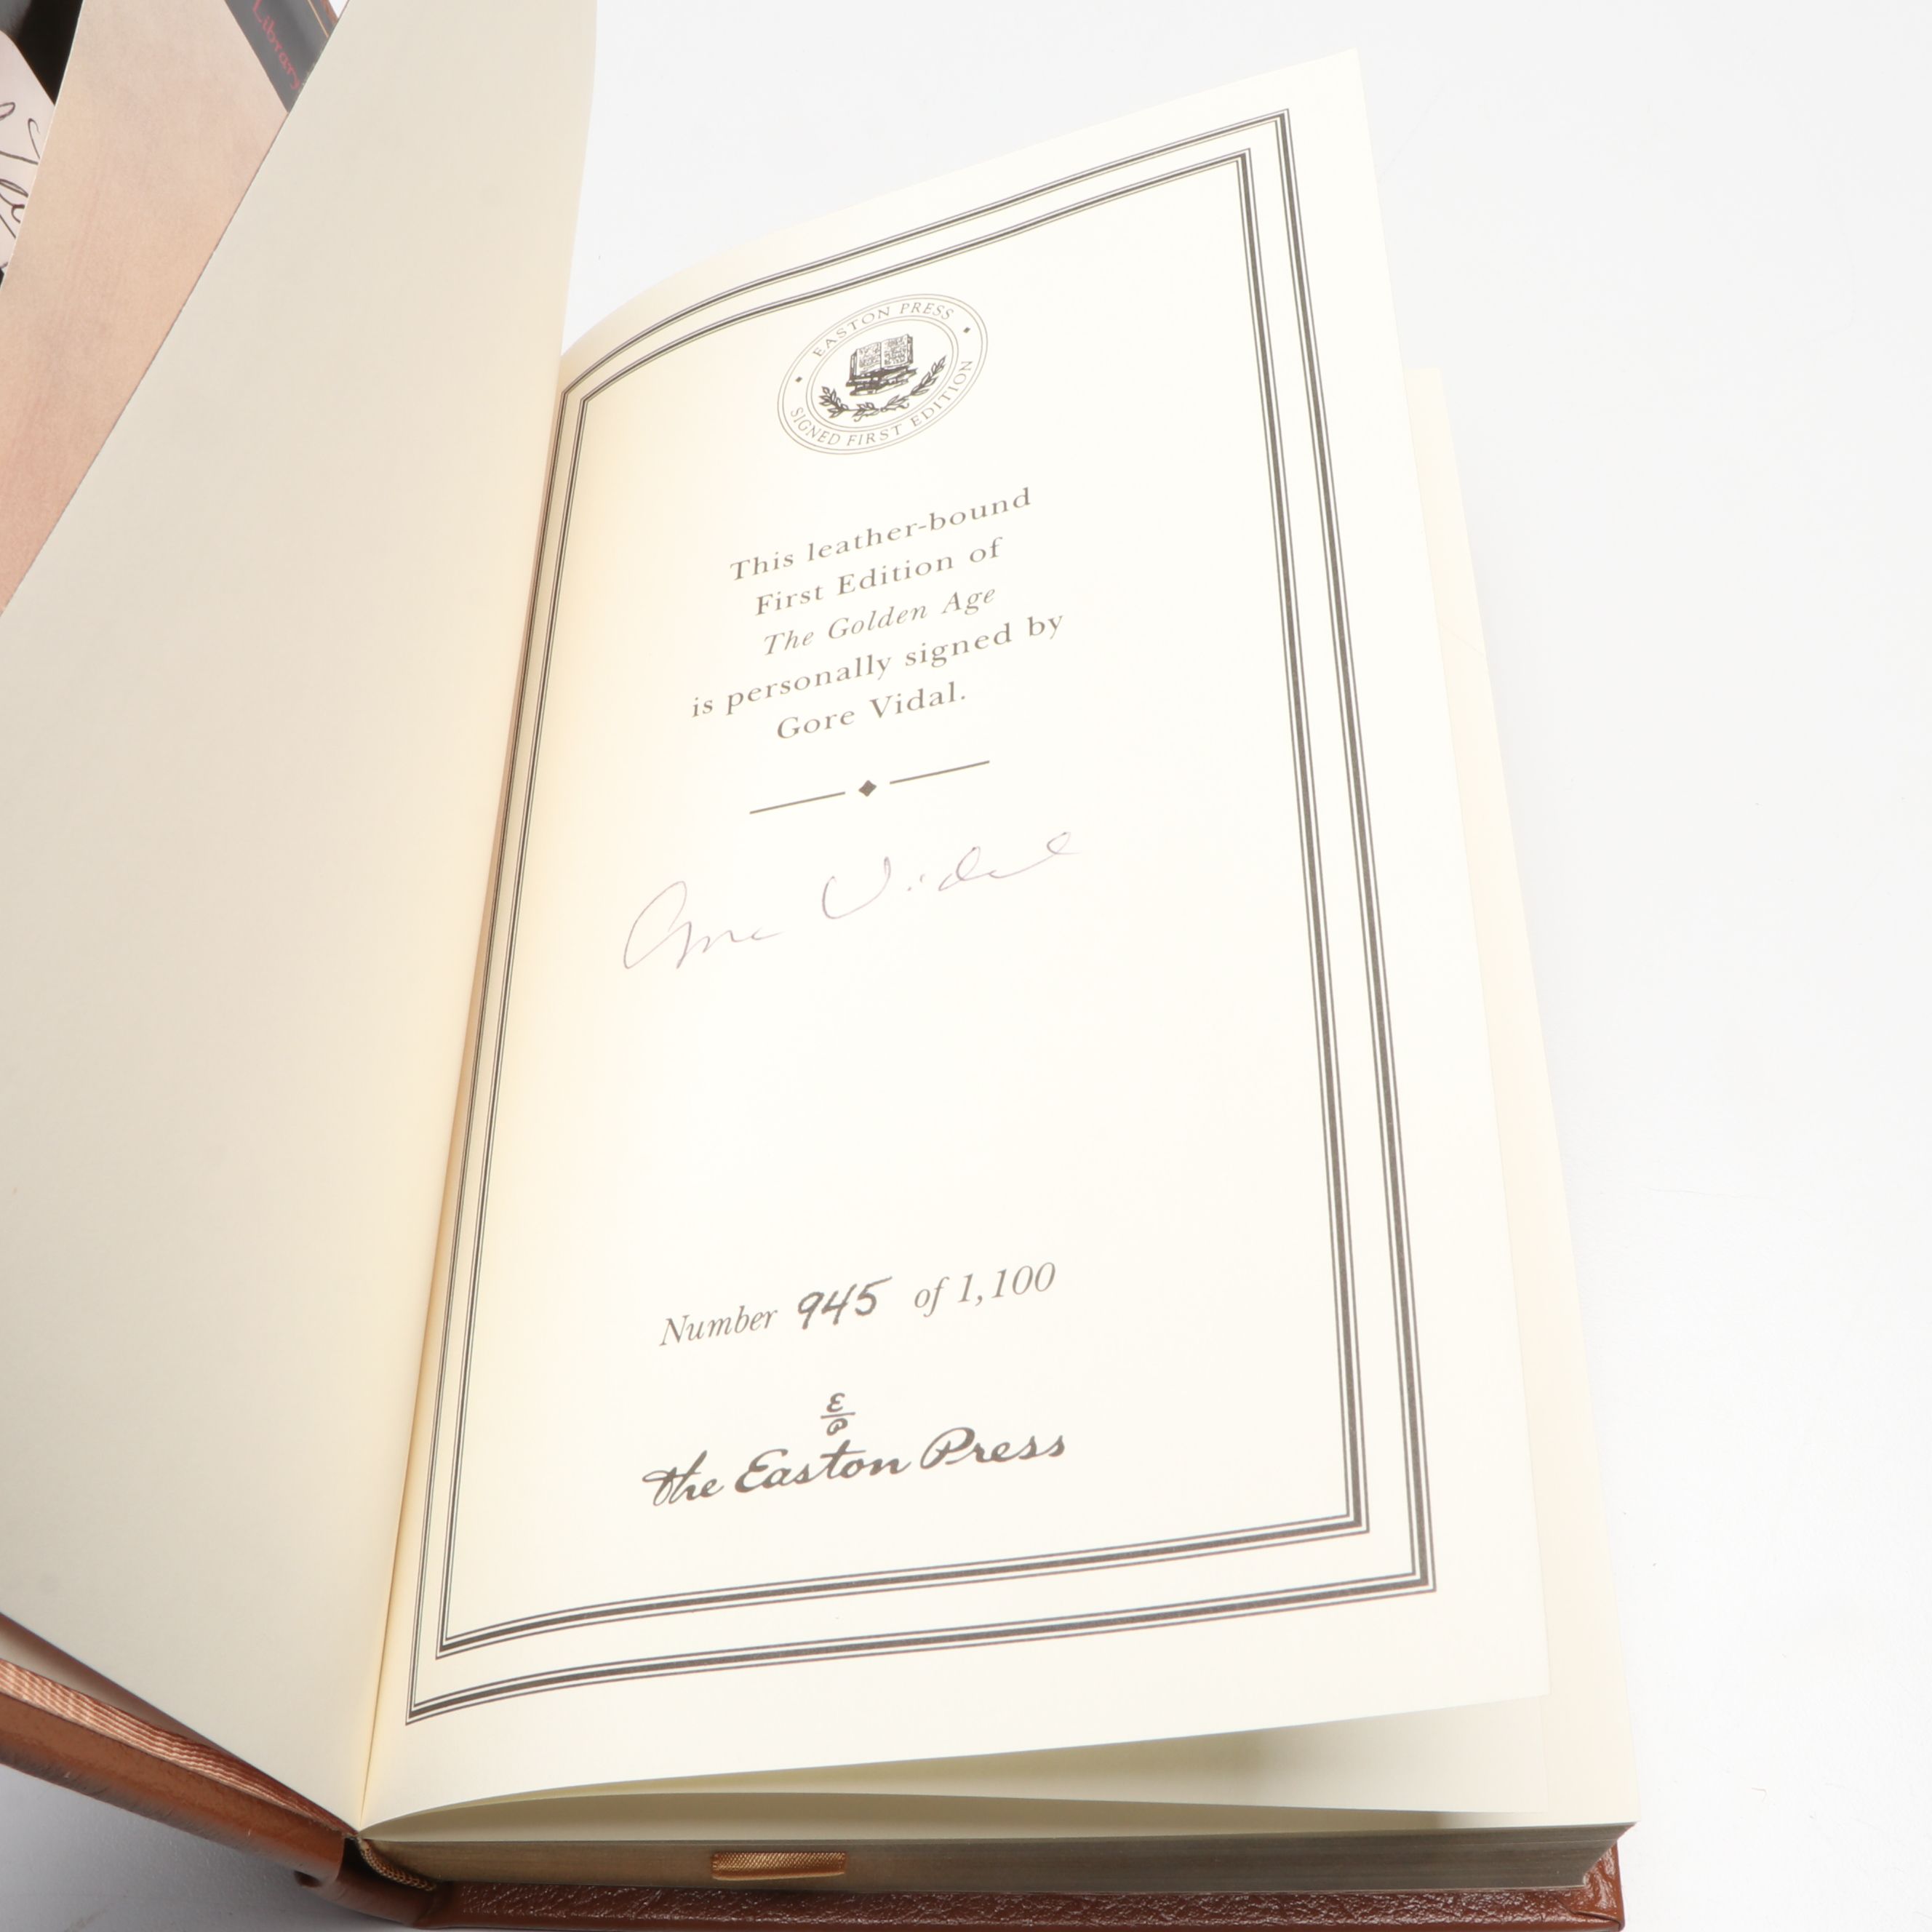 Library
EASTON PRESS
SIGNED FIRST EDITION
This leather-bound
First Edition of
The Golden Age
is personally signed by
Gore Vidal.
Gore Vidal
Number 945 of 1,100
E
P
The Easton Press